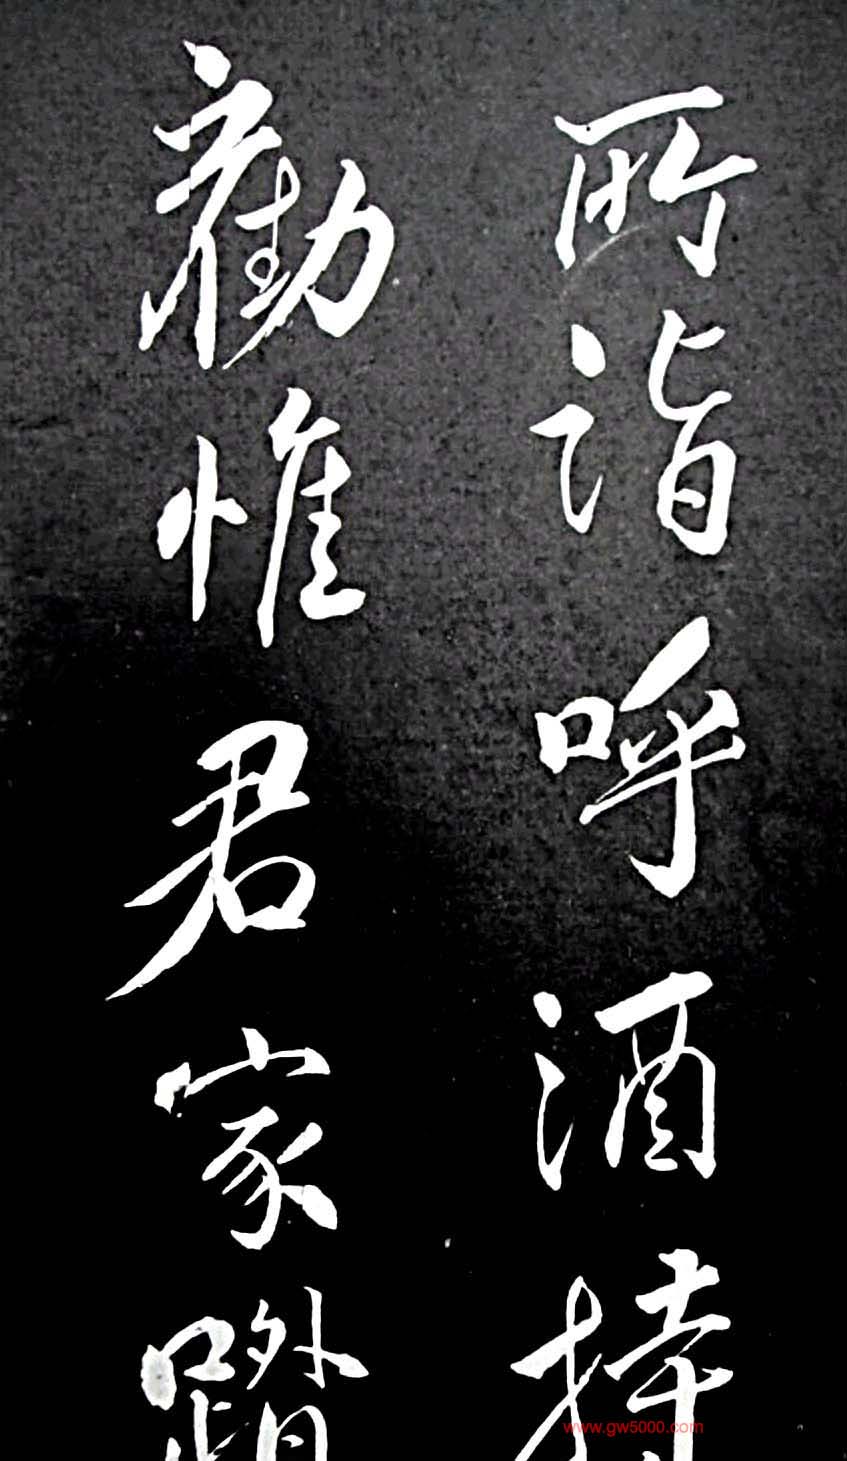 所詣呼酒持
勸惟君家
www.gw5000.com